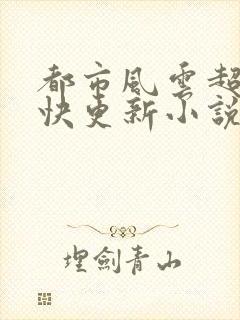 都市風雲超
快更新小說
埋劍青山